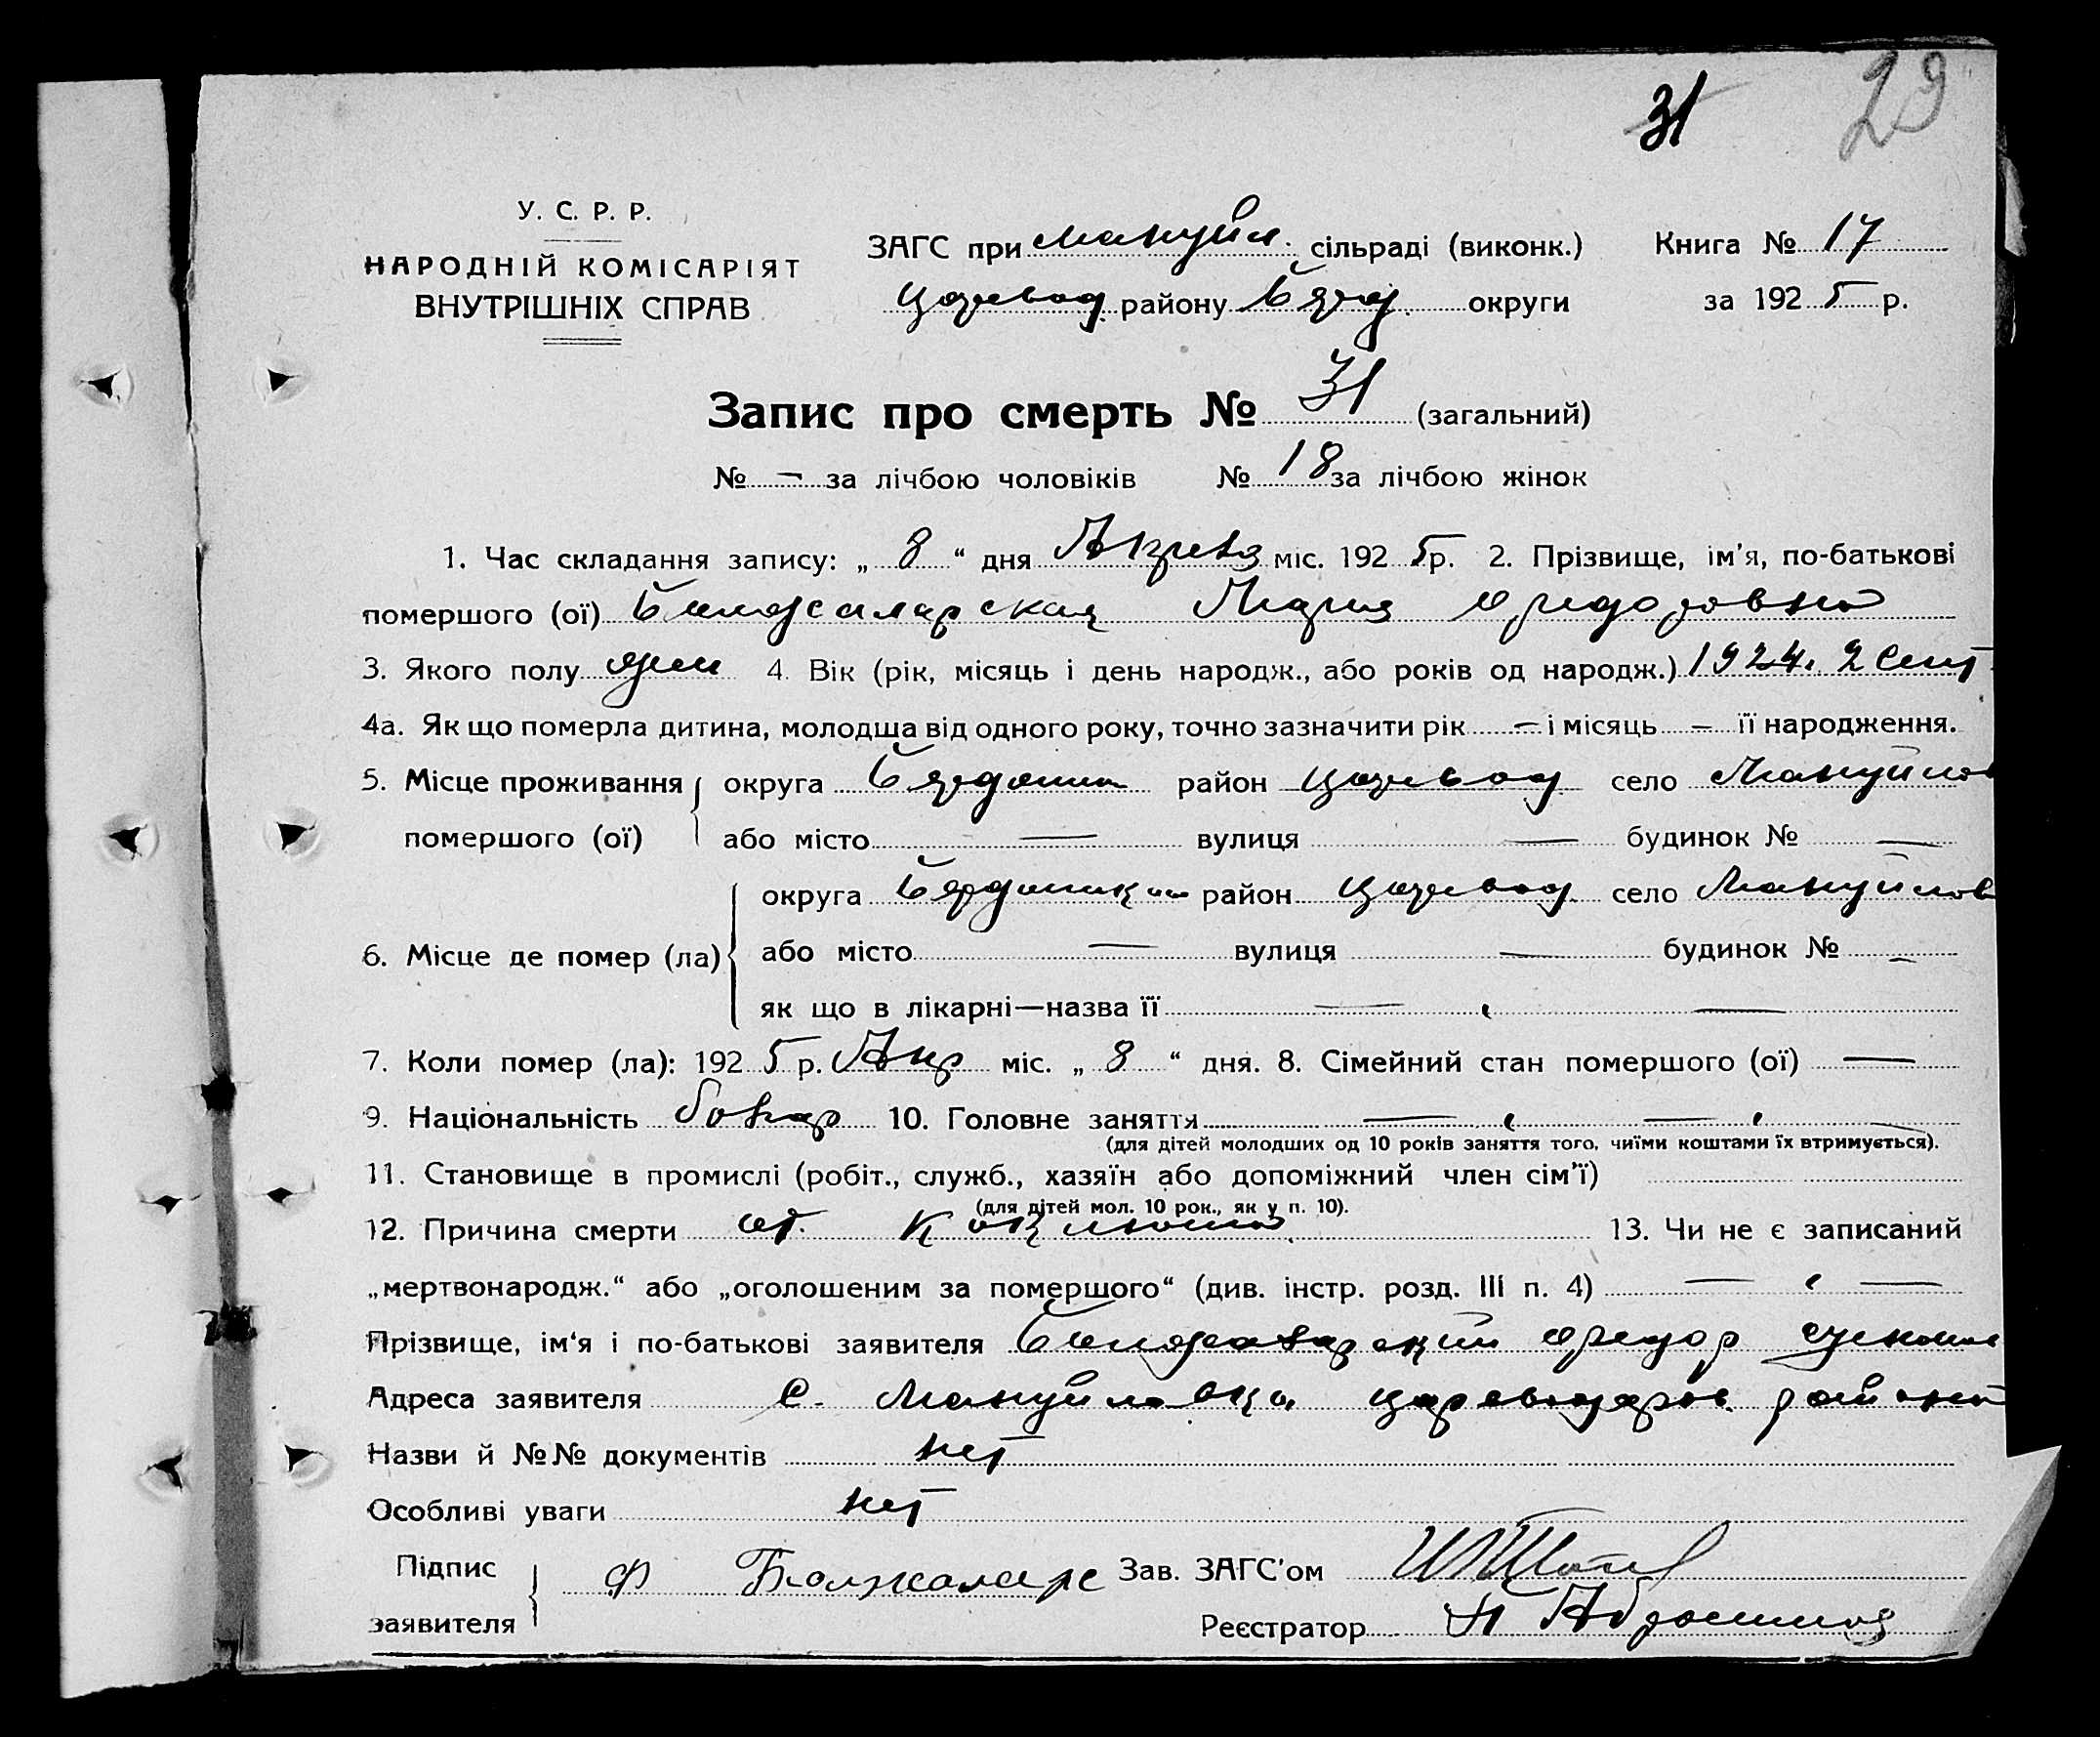 31 29
У. С. Р. Р.
НАРОДНІЙ КОМІСАРІЯТ
ВНУТРІШНІХ СПРАВ
ЗАГС при Мануйл. сільраді (виконк.) Книга № 17
Царевод. району Бярд. округи за 1925 р.
Запис про смерть № 31 (загальний)
№ — за лічбою чоловіків № 18 за лічбою жінок
1. Час складання запису: „ 8 “ дня Апреля міс. 1925 р. 2. Прізвище, ім'я, по-батькові
помершого (ої) Мария Фиодоровна
3. Якого полу жен 4. Вік (рік, місяць і день народж., або років од народж.) 1924. 2 Сент
4а. Як що померла дитина, молодша від одного року, точно зазначити рік — і місяць — її народження.
5. Місце проживання округа район Царевод село Мануйлов
помершого (ої) або місто — вулиця — будинок № —
округа район Царевод. село Мануйлов
6. Місце де помер (ла) або місто — вулиця — будинок № —
як що в лікарні—назва її — „ —
7. Коли помер (ла): 1925 р. Апр міс. „ 8 “ дня. 8. Сімейний стан помершого (ої) —
9. Національність болгар 10. Головне заняття — „ — „ —
(для дітей молодших од 10 років заняття того, чиїми коштами їх втримується).
11. Становище в промислі (робіт., служб., хазяїн або допоміжний член сім'ї)
(для дітей мол. 10 рок., як у п. 10).
12. Причина смерти от коклюша. 13. Чи не є записаний
„мертвонародж.“ або „оголошеним за помершого“ (див. інстр. розд. III п. 4) — „ —
Прізвище, ім'я і по-батькові заявителя Фиодор
Адреса заявителя с. Мануйловка Цареводаров. района
Назви й №№ документів нет
Особливі уваги нет
Підпис Ф Зав. ЗАГС'ом
заявителя Реєстратор